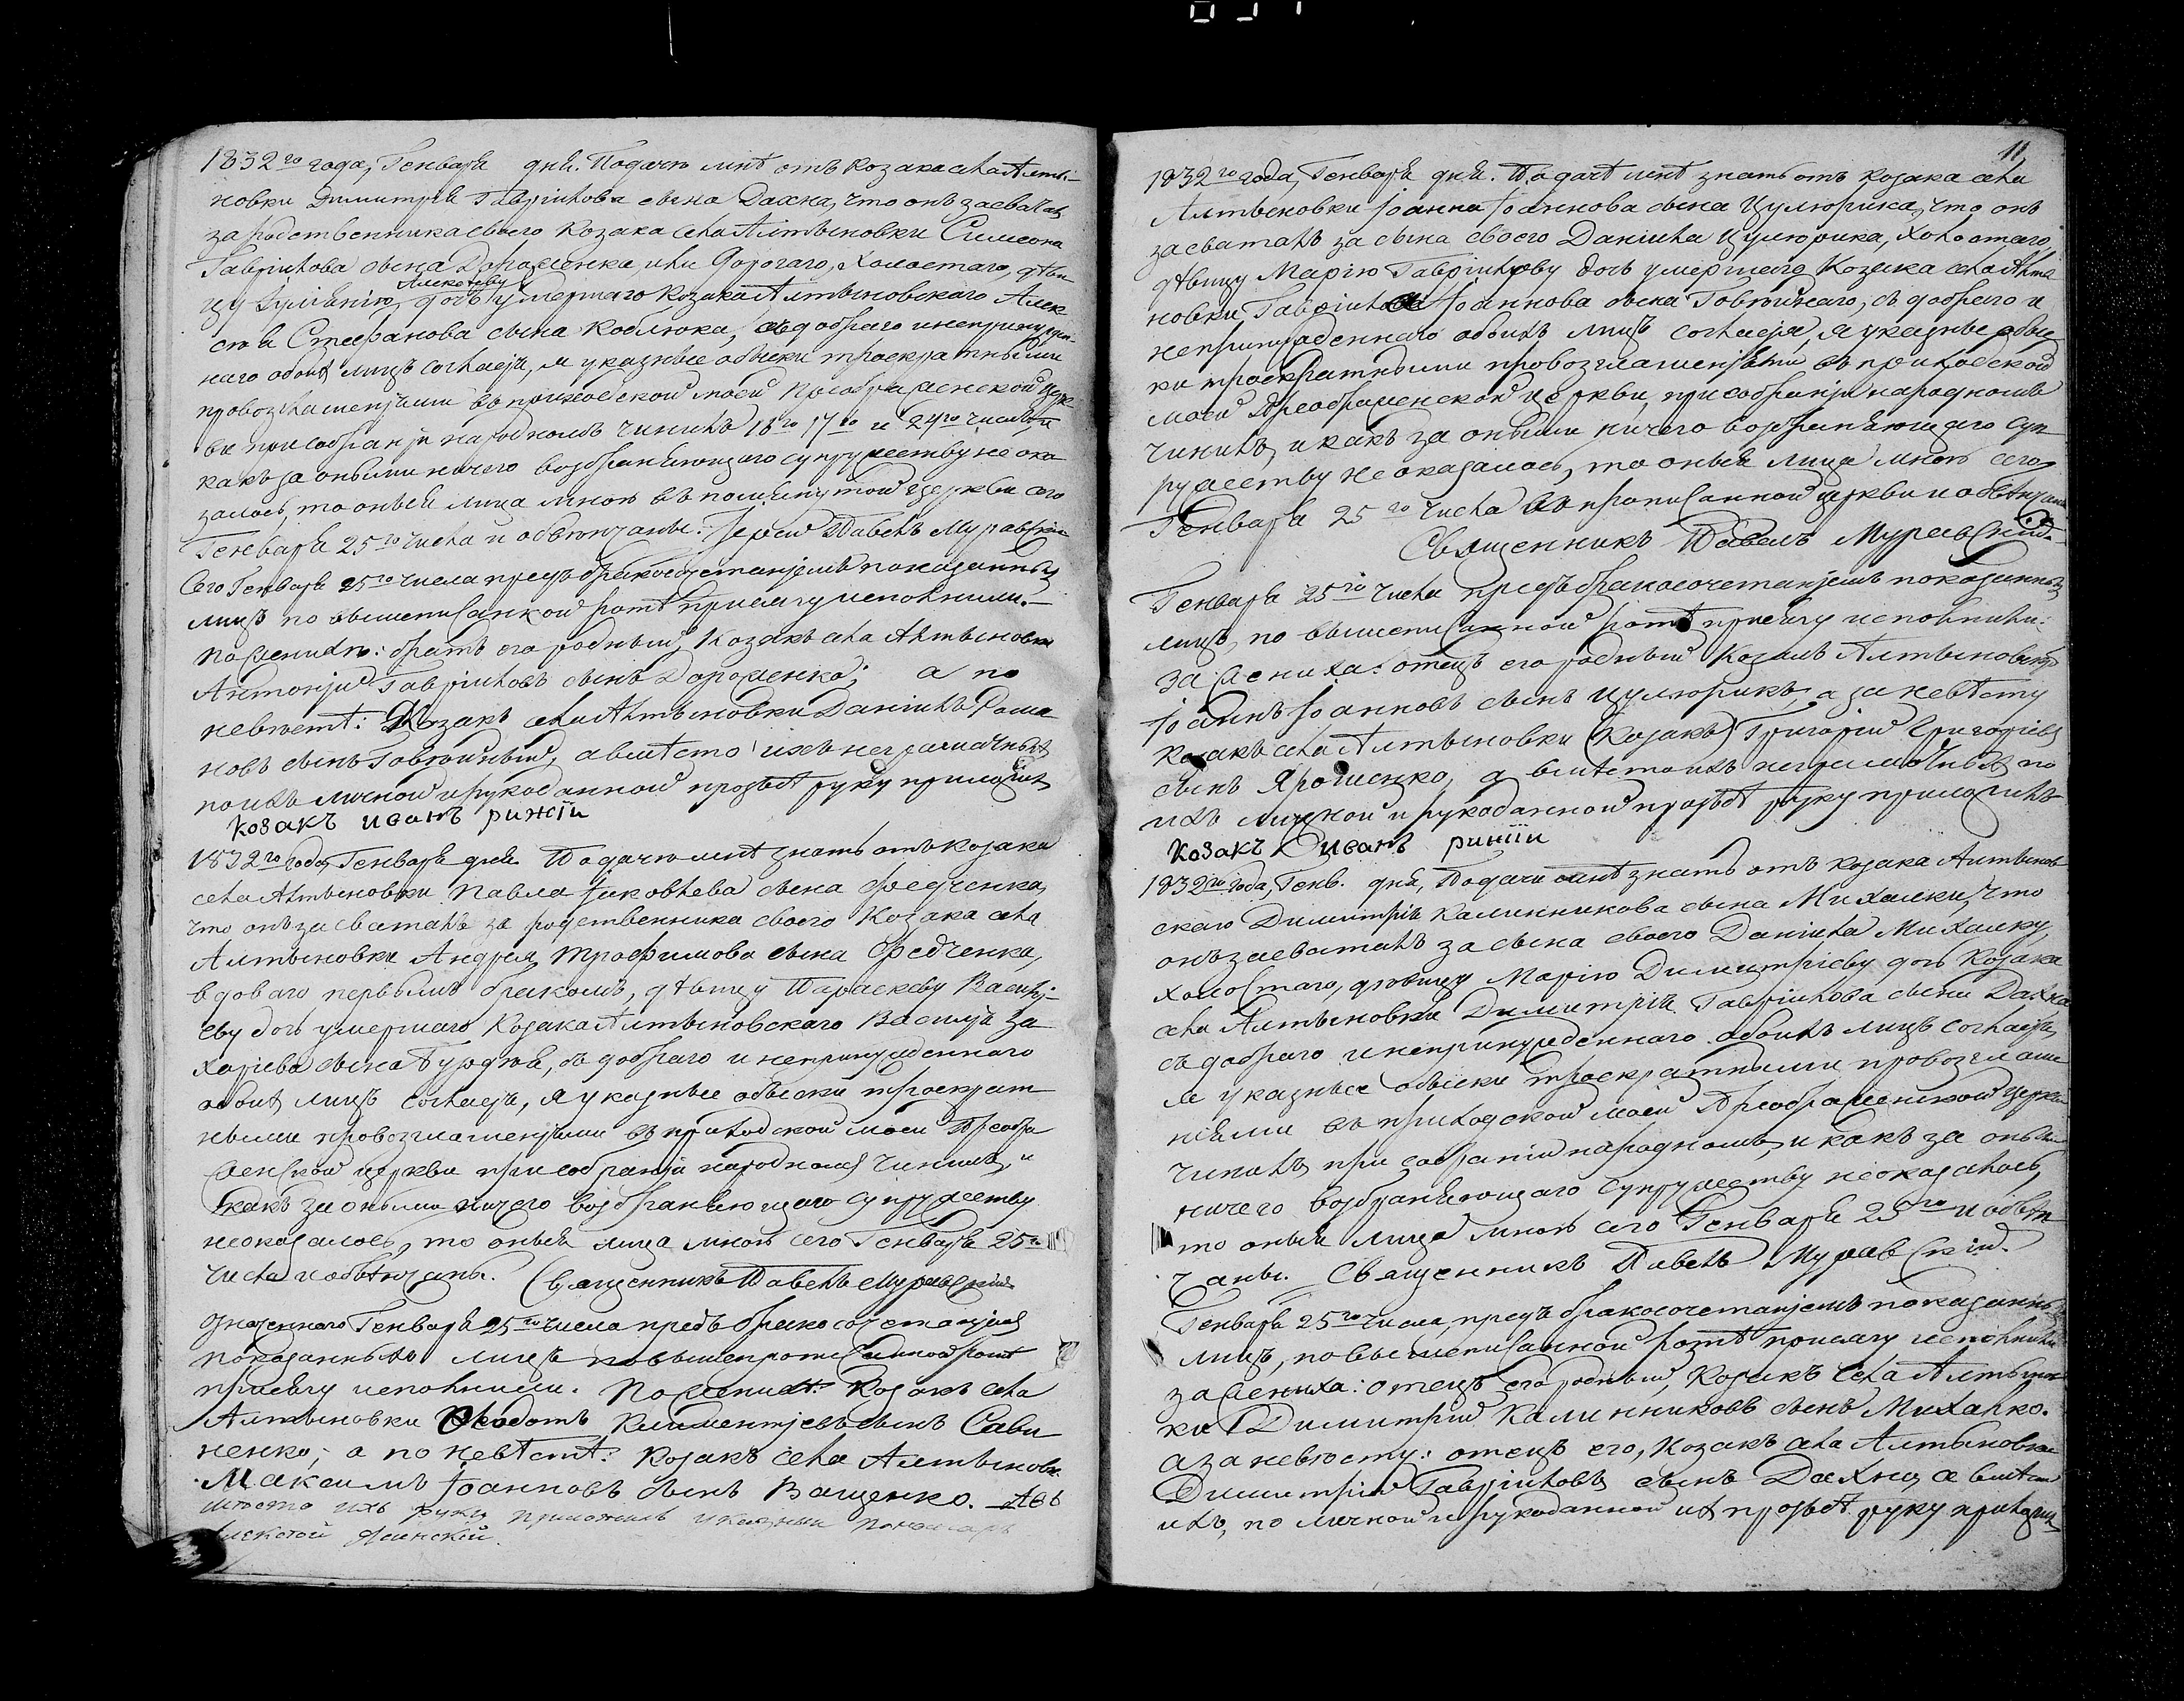 1832го года, Генваря дня. Подачю мнѣ отъ Козака села Алты-
новки Димитрія Гавріилова сына Дахна, что онъ засватавъ
за родственника своего Козака села Алтыновки Симеона
Гавріилова сына Дорошенка, или Дорогаго, холостаго, дѣви
цу Алексѣеву дочь умершаго Козака Алтыновскаго Алек
сѣя Стефанова сына Коблюка, съ добраго и непринужден-
наго обоихъ лицъ согласія, я указные обыски троекратными
провозглашеніями въ приходской моей Преображенской церк
ви при собраніи народномъ чинилъ 16го 17го и 24го числъ, и
какъ за оными ничего возбраняющаго супружеству не ока
залось, то оныя лица мною въ помянутой церкви сего
Генваря 25го числа и обвѣнчаны: Іерей Павелъ Муравскій
Сего Генваря 25го числа предъ бракосочетаніемъ показанныхъ
лицъ по вышеписанной ротѣ присягу исполнили.-
По женихѣ: братъ его родный, Козакъ села Алтыновки
Антоній Гавріиловъ сынъ Дорошенко; а по
невѣстѣ: Козакъ села Алтыновки Даніилъ Рома
новъ сынъ Говтяный, а вмѣсто ихъ неграмотныхъ
по ихъ личной и рукоданной прозьбѣ руку приложилъ
козакъ иванъ рижіи
1832го года, Генваря дня Подачю мнѣ знать отъ козака
села Алтыновки Павла Іаковлева сына Федченка,
что онъ засваталъ за родственника своего Козака села
Алтыновки Андрея Трофимова сына Федченка,
вдоваго первымъ бракомъ, дѣвицу Параскеву Василі-
еву дочь умершаго Козака Алтыновскаго Василія За
харіева сына Бурдѣя, съ добраго и непринужденнаго
обоихъ лицъ согласія, я указные обыски троекрат
ными провозглашеніями въ приходской моей Преобра
женской церкви при собраніи народномъ чинилъ, и
какъ за оными ничего возбраняющаго супружеству
не оказалось, то оныя лица мною сего Генваря 25го
числа и обвѣнчаны. Священникъ Павелъ Муравскій
Означеннаго Генваря 25го числа предъ бракосочетаніемъ
показанныхъ лицъ по вышепрописанной ротѣ
присягу исполнили. По женихѣ: Козакъ села
Алтыновки Ѳеодотъ Климентіевъ сынъ Сави
ненко, а по невѣстѣ: Козакъ села Алтыновки
Максимъ Іоанновъ сынъ Ващенко. Авъ
мѣсто ихъ руку приложилъ указный пономарь
11
1832го года, Генваря дня. Подачѣ мнѣ знать отъ козака села
Алтыновки Іоанна Іоаннова сына Цулюрика, что онъ
засваталъ за сына своего Даніила Цулюрика, холостаго,
дѣвицу Марію Гавріилову дочь умершаго Козака села Алты
новки Гавріила Іоаннова сына Говтянаго, съ добраго и
непринужденнаго обоихъ лицъ согласія, я указные обыс
ки троекратными провозглашеніями въ приходской
моей Преображенской церкви, при собраніи народномъ
чинилъ, и какъ за оными ничего возбраняющаго суп
ружеству не оказалось, то оныя лица мною сего
Генваря 25го числа въ прописанной церкви и обвѣнчаны
Священникъ Павелъ Муравскій.
Генваря 25го числа предъ бракосочетаніемъ показанныхъ
лицъ, по вышеписанной ротѣ присягу исполнили:
за жениха: отецъ его родный Козакъ Алтыновскій
Іоаннъ Іоанновъ сынъ Цулюрикъ, а за невѣсту
козакъ села Алтыновки (Козакъ) Григорій Григоріевъ
сынъ Ярошенко, а вмѣсто ихъ неграмотныхъ по
ихъ личной и рукоданной прозьбѣ руку приложилъ
козакъ иванъ рижіи
1832го года, Генв. дня, Подачи мнѣ знать отъ козака Алтынов
скаго Димитрія Калинникова сына Михалки, что
онъ засваталъ за сына своего Даніила Михалку,
холостаго, дѣвицу Марію Димитріеву дочь Козака
села Алтыновки Димитрія Гавріилова сына Дахна
съ добраго и непринужденнаго обоихъ лицъ согласія,
я указные обыски троекратными провозглаше
ніями въ приходской моей Преображенской церкви
чинилъ при собраніи народномъ, и какъ за оными
ничего возбраняющаго супружеству не оказалось,
то оныя лица мною сего Генваря 25го и обвѣн
чаны. Священникъ Павелъ Муравскій.
Генваря 25го числа, предъ бракосочетаніемъ показанныхъ
лицъ, по вышеписанной ротѣ присягу исполнили
за жениха: отецъ его родный, Козакъ села Алтынов
ки Димитрій Калинниковъ сынъ Михалко.
а за невѣсту: отецъ его, Козакъ села Алтыновки
Димитрій Гавріиловъ сынъ Дахно, а вмѣсто
ихъ, по личной и рукоданной ихъ прозьбѣ руку приложилъ